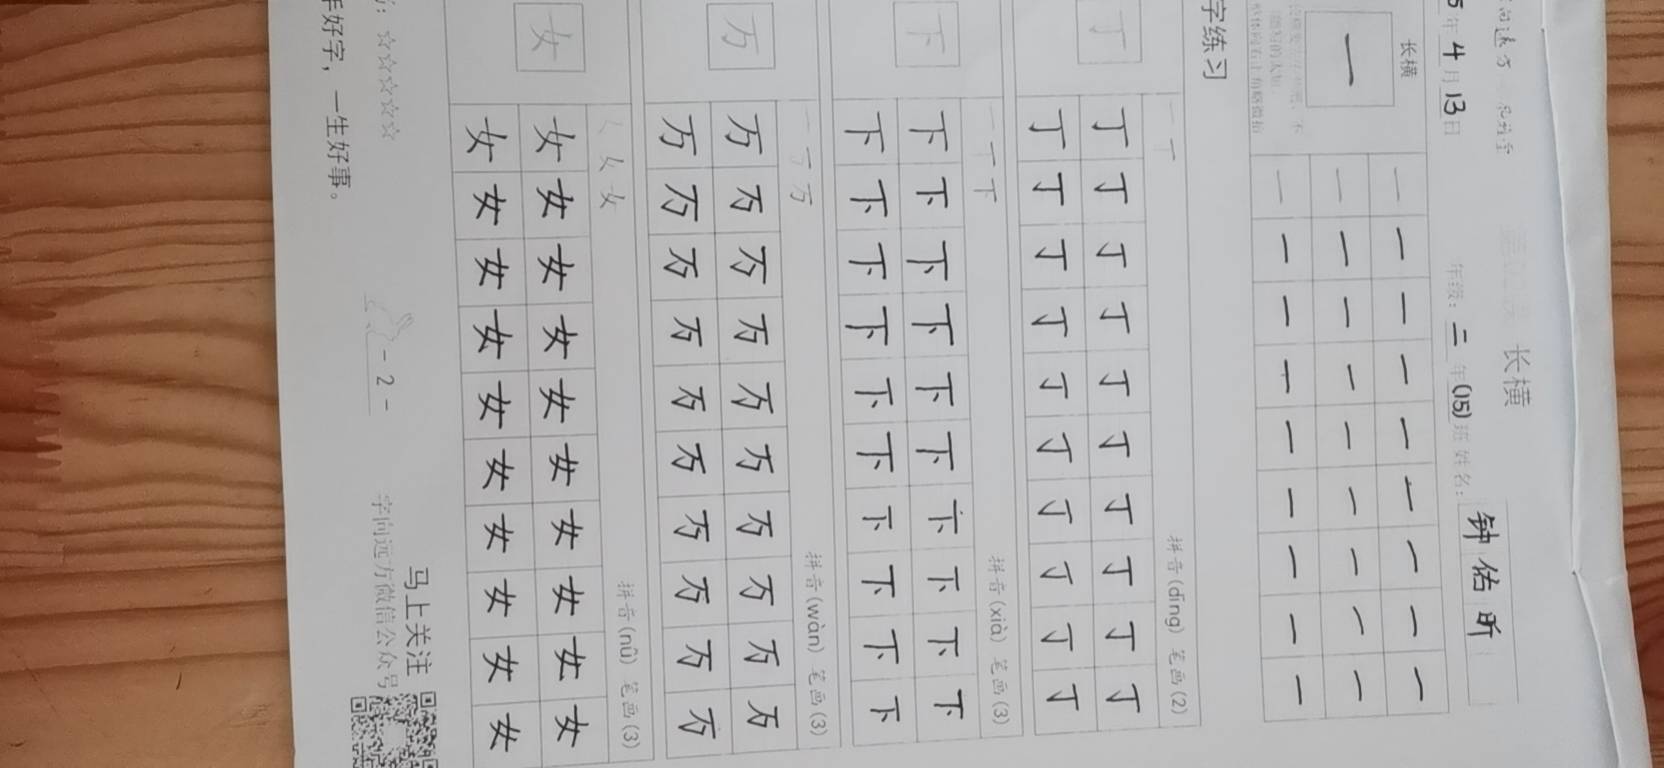 长横
5年4月13日 年级：二年(15)班 姓名：钟佑昕
长横
一 一 一 一 一 一 一 一 一 一
一 一 一 一 一 一 一 一 一
一 一 一 一 一 一 一 一 一
一 一 一 一 一 一 一 一 一
字练习
丁 一丁 拼音(dīng) 笔画(2)
丁 丁 丁 丁 丁 丁 丁 丁 丁 丁
丁 丁 丁 丁 丁 丁 丁 丁 丁 丁
下 一丅下 拼音(xià) 笔画(3)
下 下 下 下 下 下 下 下 下 下
下 下 下 下 下 下 下 下 下 下
万 一丆万 拼音(wàn) 笔画(3)
万 万 万 万 万 万 万 万 万 万
万 万 万 万 万 万 万 万 万 万
女 拼音(nǚ) 笔画(3)
女 女 女 女 女 女 女 女 女 女
女 女 女 女 女 女 女 女 女 女
☆☆☆☆☆ 马上关注
- 2 - 字向远方微信公众号
手好字，一生好事。